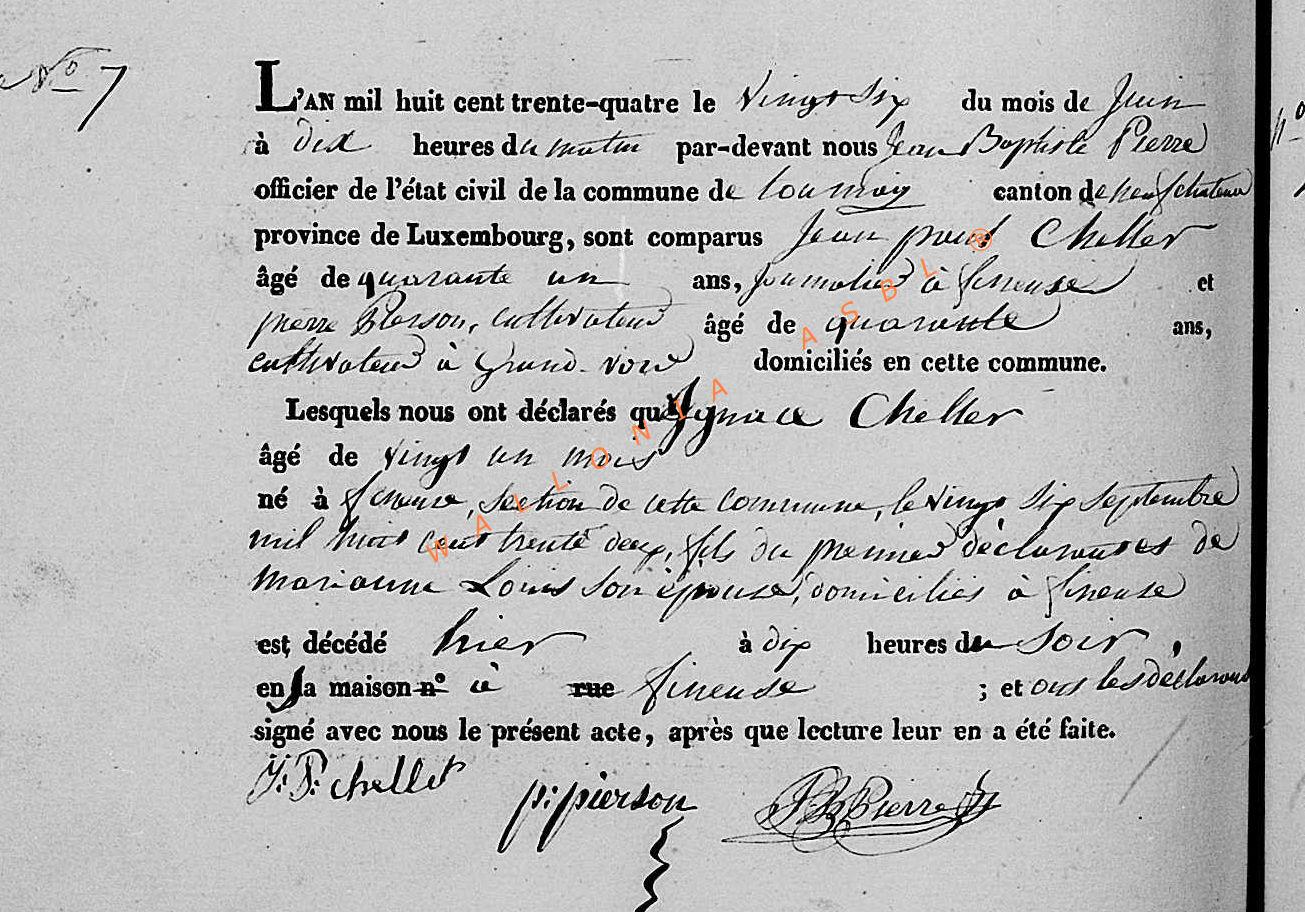 No 7
L'AN mil huit cent trente-quatre le vingt six du mois de Juin
à dix heures du matin par-devant nous Jean Baptiste Pierre
officier de l'état civil de la commune de tournay canton de neufchateau
province de Luxembourg, sont comparus Jean Cheller
âgé de quarante un ans, journalier à fineuse et
pierre Pierson, cultivateur âgé de quarante ans,
cultivateur à Grand-voir domiciliés en cette commune.
Lesquels nous ont déclarés que Ignace Cheller
âgé de vingt un mois
né à fineuse, section de cette commune, le vingt six septembre
mil huit cent trente deux, fils du premier déclarant et de
marianne Louis son épouse, domiciliés à fineuse
est décédé hier à dix heures du soir,
en sa maison n° à rue fineuse ; et ont les déclarants
signé avec nous le présent acte, après que lecture leur en a été faite.
J: P: chellet
p: pierson
JB Pierre
WALLONIA ASBL ®